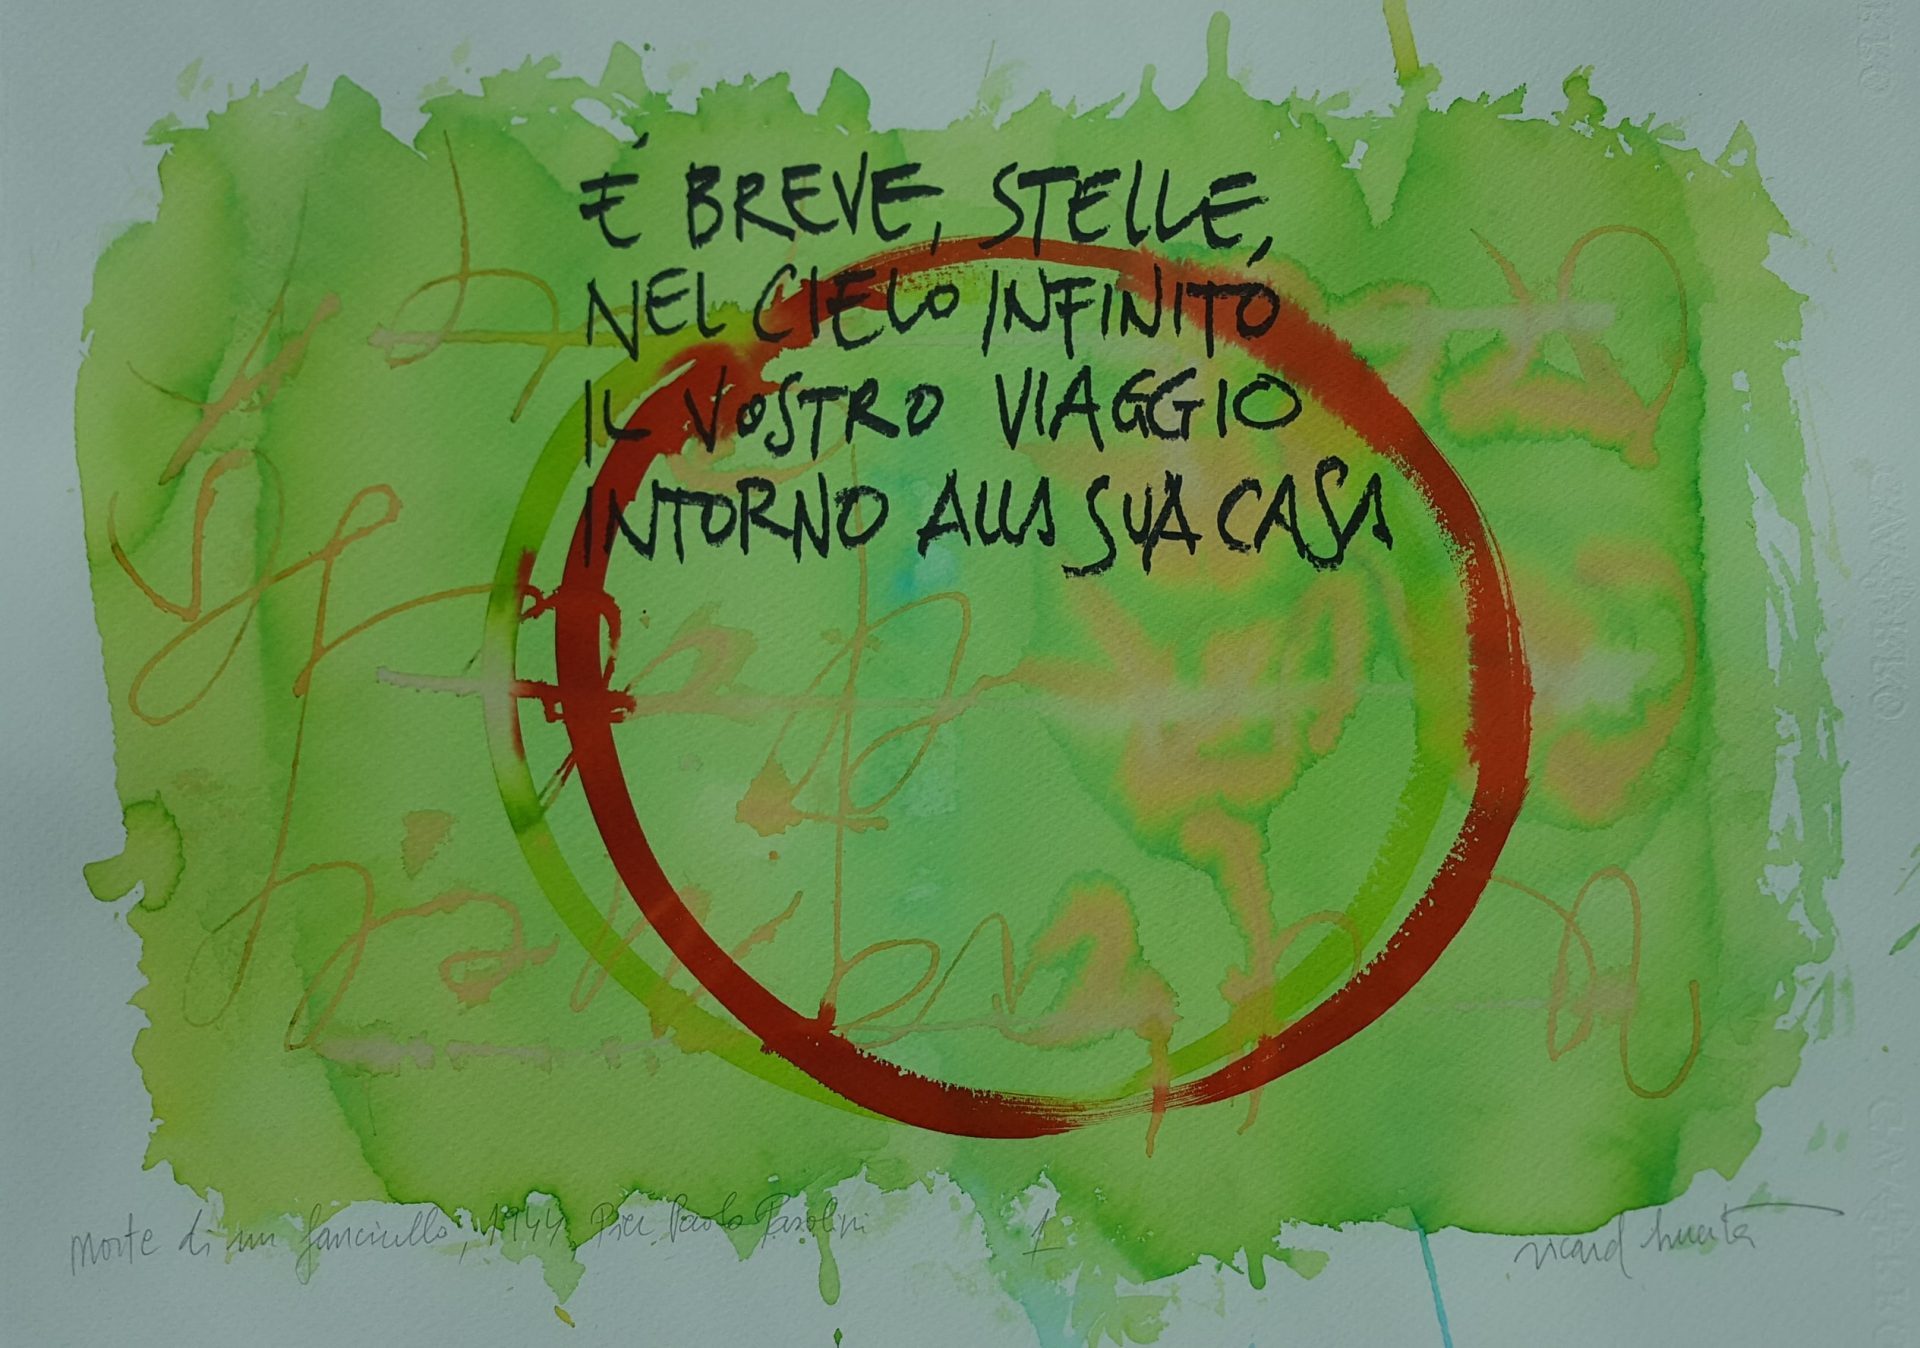 É BREVE, STELLE,
NEL CIELO INFINITO
IL VOSTRO VIAGGIO
INTORNO ALLA SUA CASA
Morte di un fanciullo, 1944, Pier Paolo Pasolini 1 ricard huerta